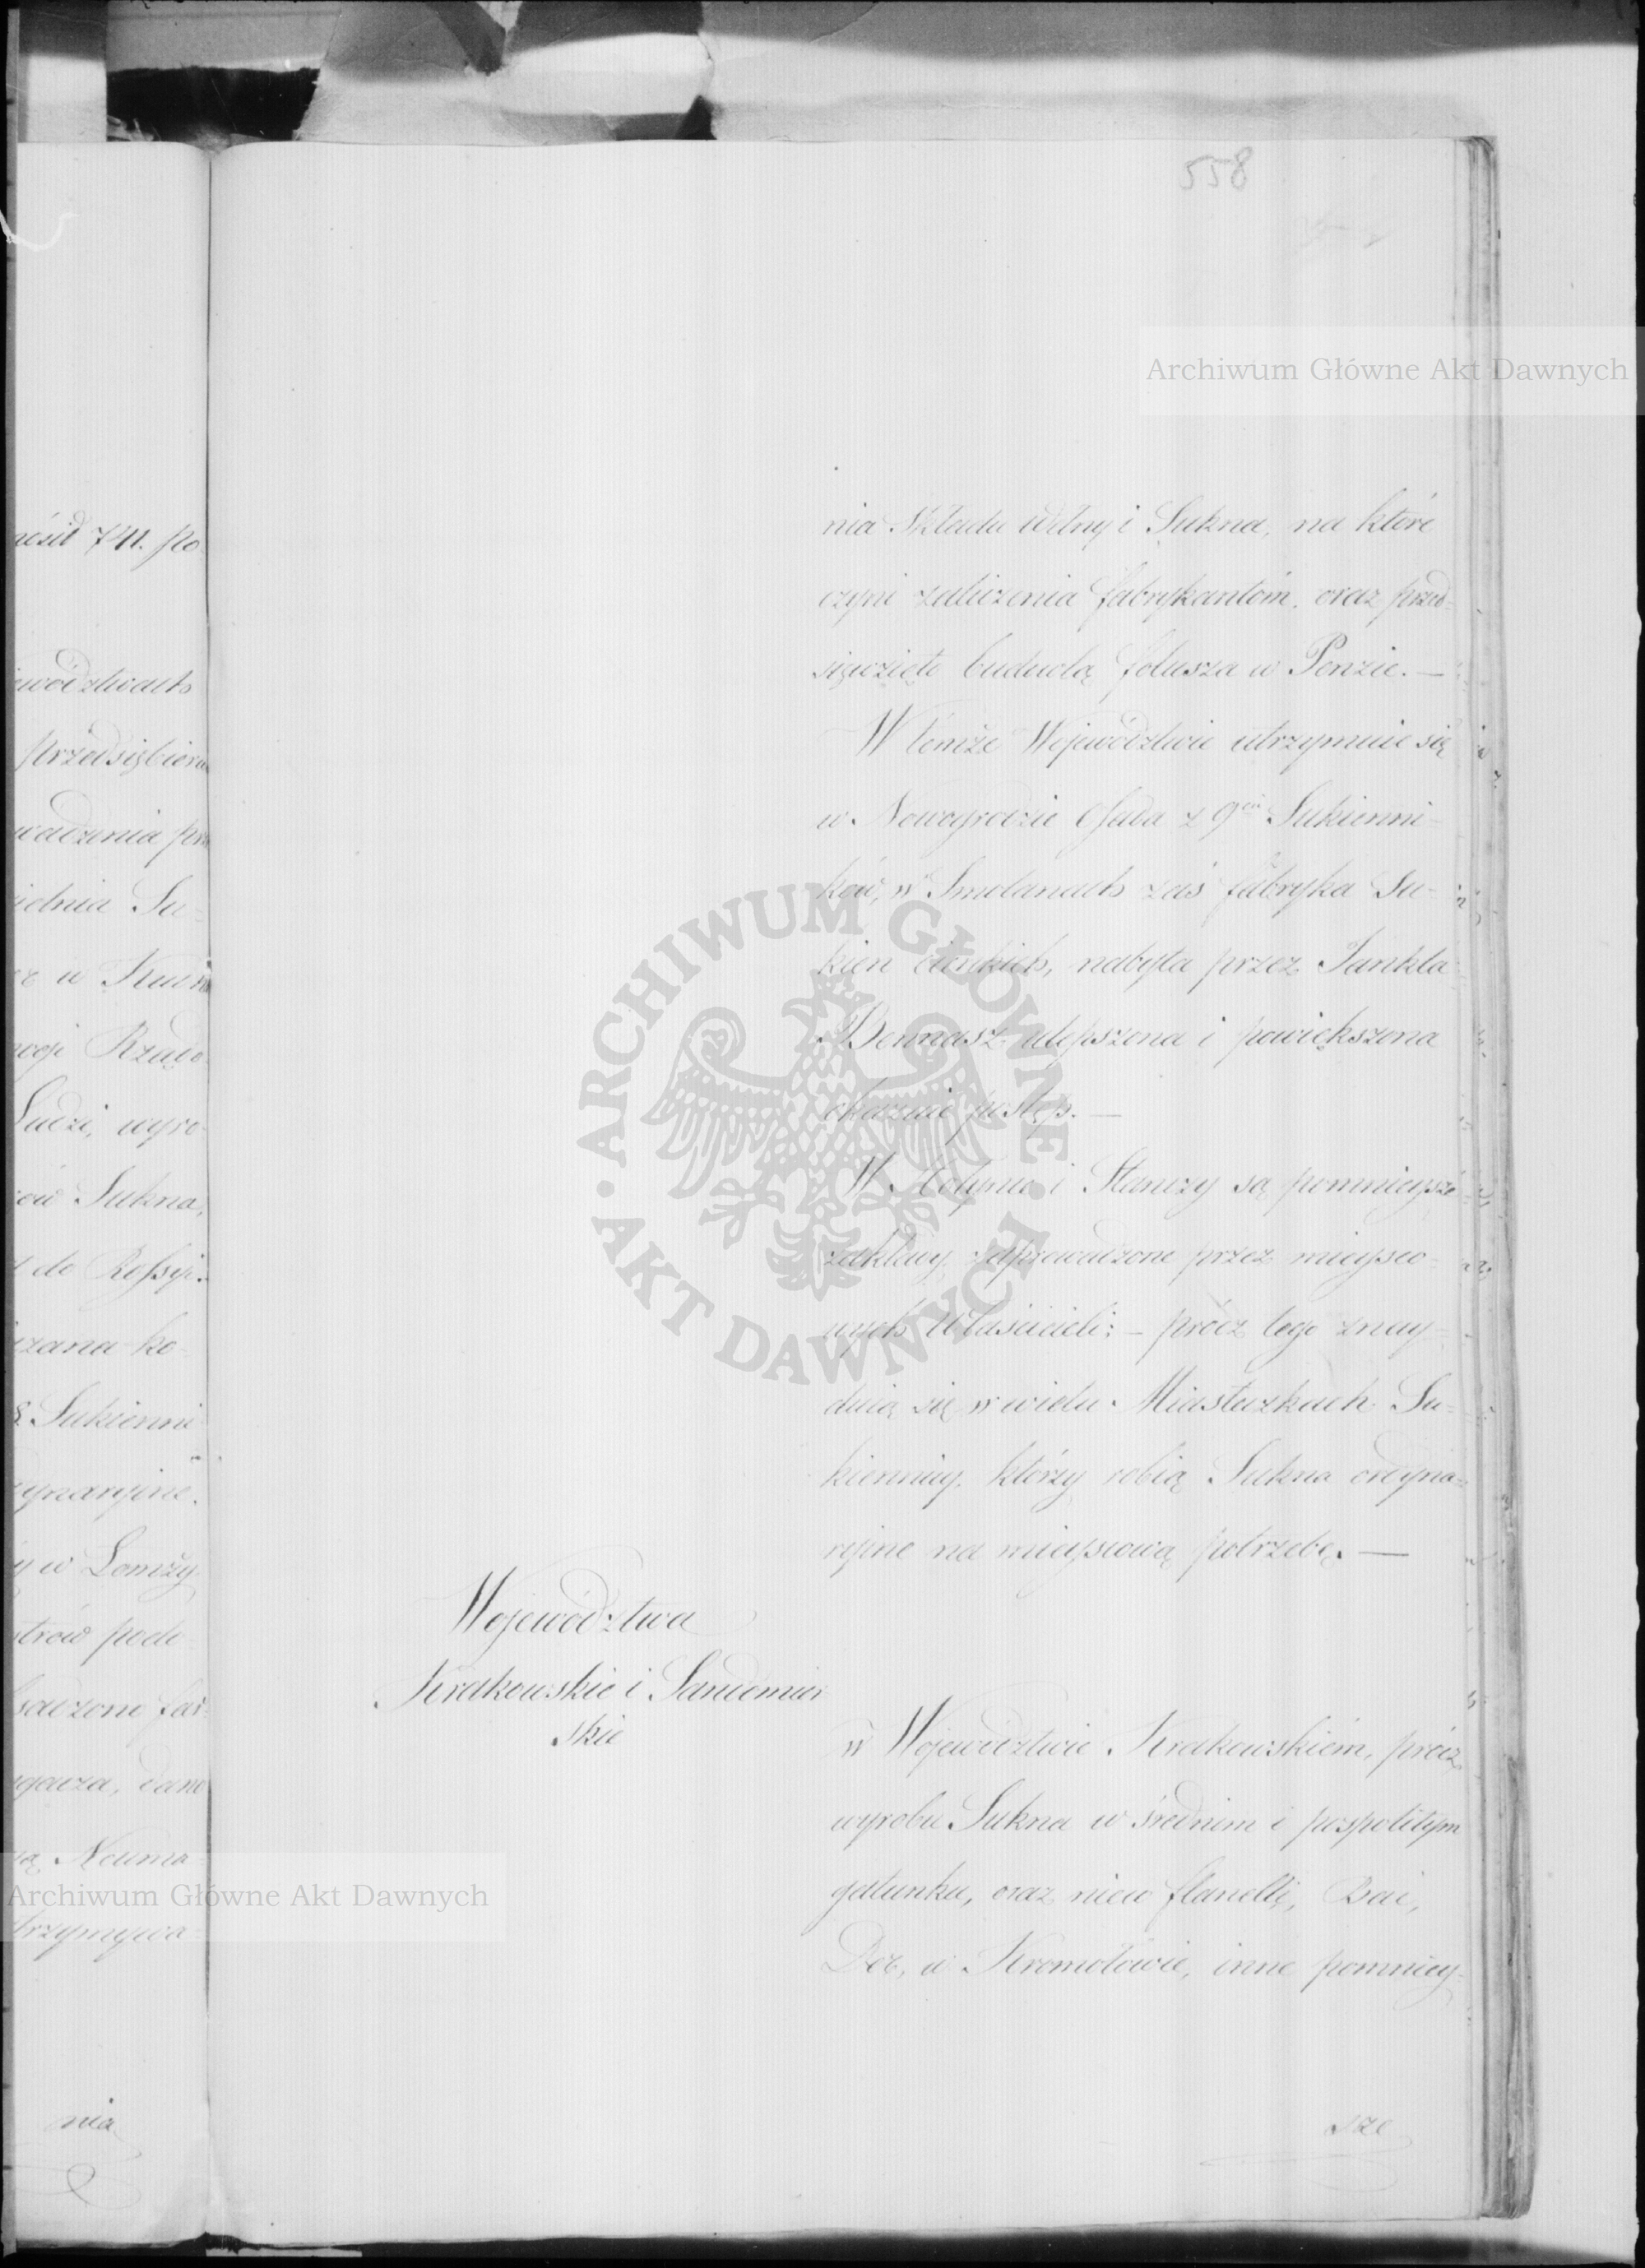 558
Archiwum Główne Akt Dawnych
nia Składu Wełny i Sukna, na które
czyni zaliczenia fabrykantóm, oraz przed-
sięwzięto budowlą folusza w Penzie. —
W temże Województwie utrzymuie się
w Nowogrodzie Osada z 9ciu Sukienni-
ków, w Smolanach zaś fabryka Su-
kien cienkich, nabyta przez Jankla
ulepszona i powiększona
okazuie postęp. —
W i Stawczy są pomnieysze
zakłady zaprowadzone przez mieysco-
wych Właścicieli: — prócz tego znay-
duią się w wielu Miasteczkach Su-
kiennicy, którzy robią Sukna ordyna-
ryine na mieyscową potrzebę. —
Województwa
Krakowskie i Sandomier
skie
w Województwie Krakowskiém, prócz
wyrobu Sukna w średnim i pospolitym
gatunku, oraz nieco flanelli, Bai,
Der, w Kromołowie, inne pomniey-
sze
ARCHIWUM GŁÓWNE AKT DAWNYCH
nieśił 711. po
ewództwach
przedsiębiera
wadzenia
ielnia Su-
Rządo-
Ludzi, wyro-
ców Sukna,
do Rossyi.
zana ko-
8 Sukienni
dynaryine.
y w Łomży
strów podo
sadzono far-
dano
są Neuma-
Archiwum Główne Akt Dawnych
trzymywa-
nia